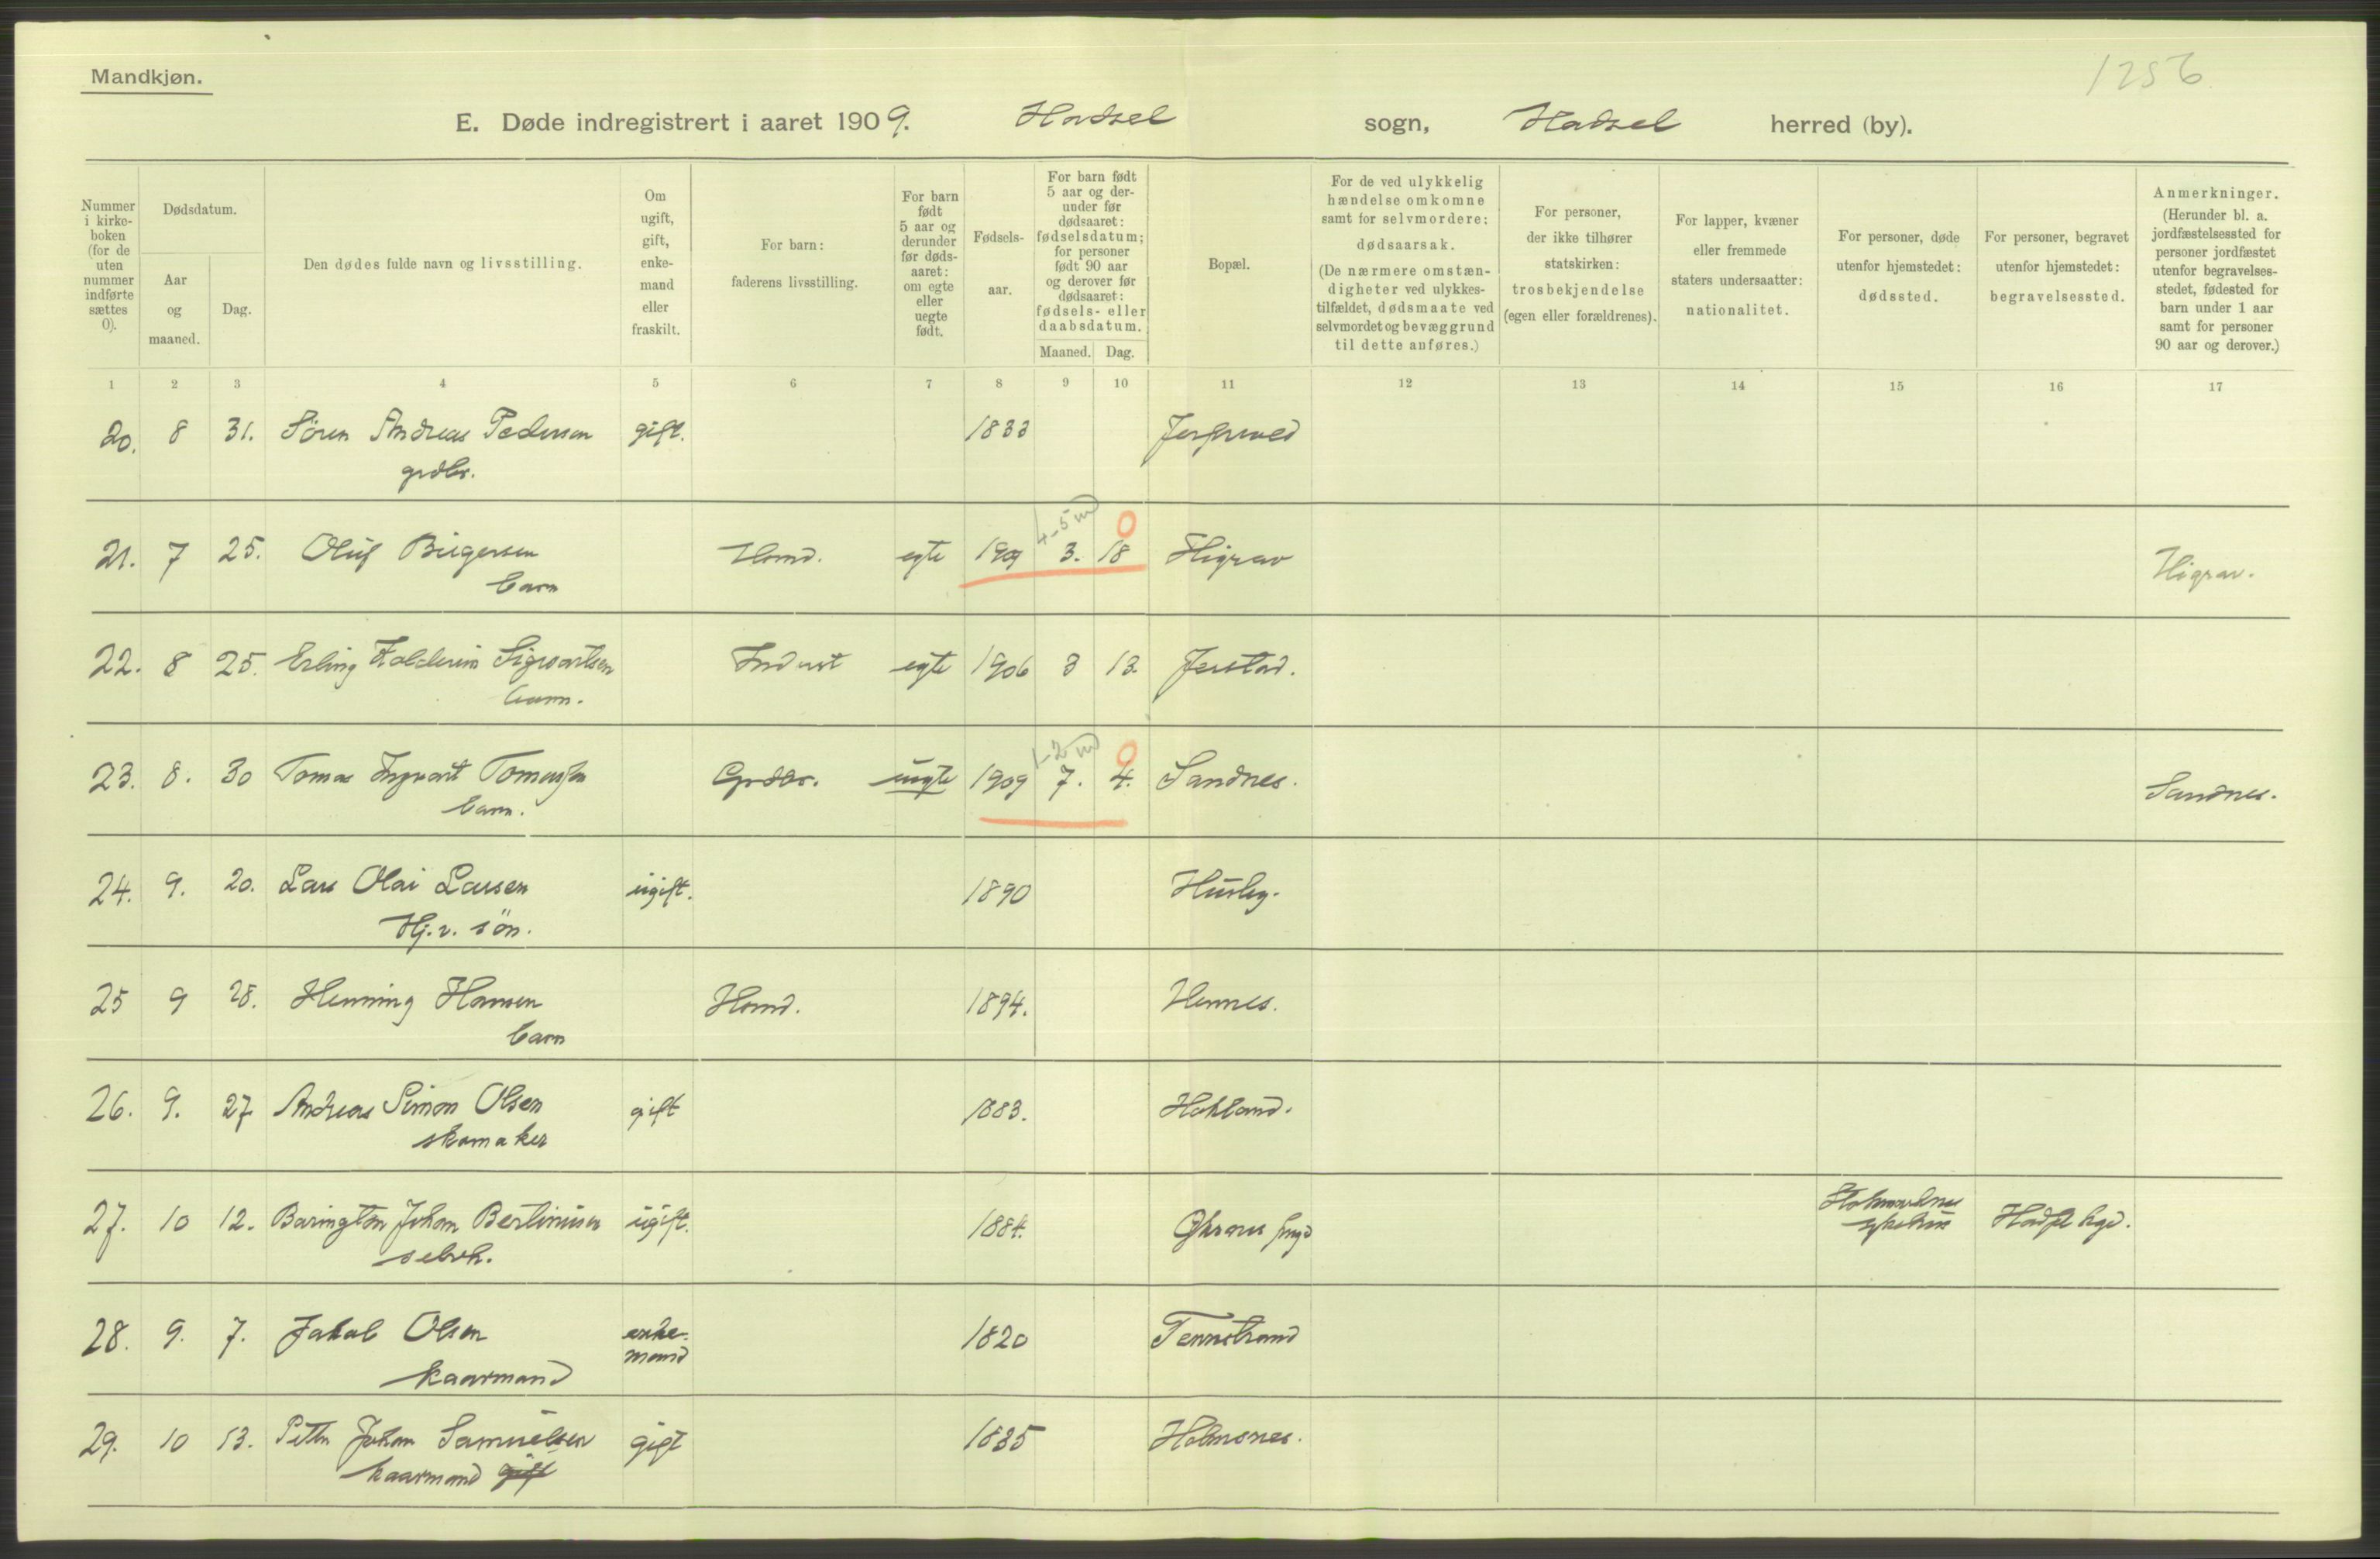 Mandkjøn.
1256
E. Døde indregistrert i aaret 1909. Hadsel sogn, Hadsel herred (by).
Nummer i kirkeboken (for de uten nummer indførte sættes 0).
Dødsdatum.
Aar og maaned.
Dag.
Den dødes fulde navn og livsstilling.
Om ugift, gift, enkemand eller fraskilt.
For barn: faderens livsstilling.
For barn født 5 aar og derunder før dødsaaret: om egte eller uegte født.
Fødselsaar.
For barn født 5 aar og derunder før dødsaaret: fødselsdatum; for personer født 90 aar og derover før dødsaaret: fødsels- eller daabsdatum.
Maaned. Dag.
Bopæl.
For de ved ulykkelig hændelse omkomne samt for selvmordere: dødsaarsak. (De nærmere omstændigheter ved ulykkestilfældet, dødsmaate ved selvmordet og bevæggrund til dette anføres.)
For personer, der ikke tilhører statskirken: trosbekjendelse (egen eller forældrenes).
For lapper, kvæner eller fremmede staters undersaatter: nationalitet.
For personer, døde utenfor hjemstedet: dødssted.
For personer, begravet utenfor hjemstedet: begravelsessted.
Anmerkninger. (Herunder bl. a. jordfæstelsessted for personer jordfæstet utenfor begravelsesstedet, fødested for barn under 1 aar samt for personer 90 aar og derover.)
1 2 3 4 5 6 7 8 9 10 11 12 13 14 15 16 17
20. 8 31. Sören Andreas Pedersen gift. 1833
grdbr.
4-5 md 0
21. 7 25. Oluf Birgersen Hsmd. egte 1909 3. 18 Higrav Higrav.
barn
22. 8 25. Erling Sigvartsen Indrust egte 1906 3 13. Jerstad.
barn.
1-2 md 0
23. 8. 30 Tomas Ingvart Tomassen Grdbr. uegte 1909 7. 4. Sandnes. Sandnes.
barn.
24. 9. 20. Lars Olai Larsen ugift. 1890 Husby.
Hj. v. sön.
25 9 28. Henning Hansen Hsmd. 1894. Hennes.
barn
26. 9. 27 Andreas Simon Olsen gift 1883. Hokland.
skomaker
27. 10 12. Barington Johan Bertinusen ugift. 1884. Stokmarknes sykehus Hadsel kgd.
selvh.
28. 9. 7. Jakob Olsen enkemand 1820 Tennstrand
kaarmand
29. 10 13. Peter Johan Samuelsen gift 1835 Holmsnes.
kaarmand gift